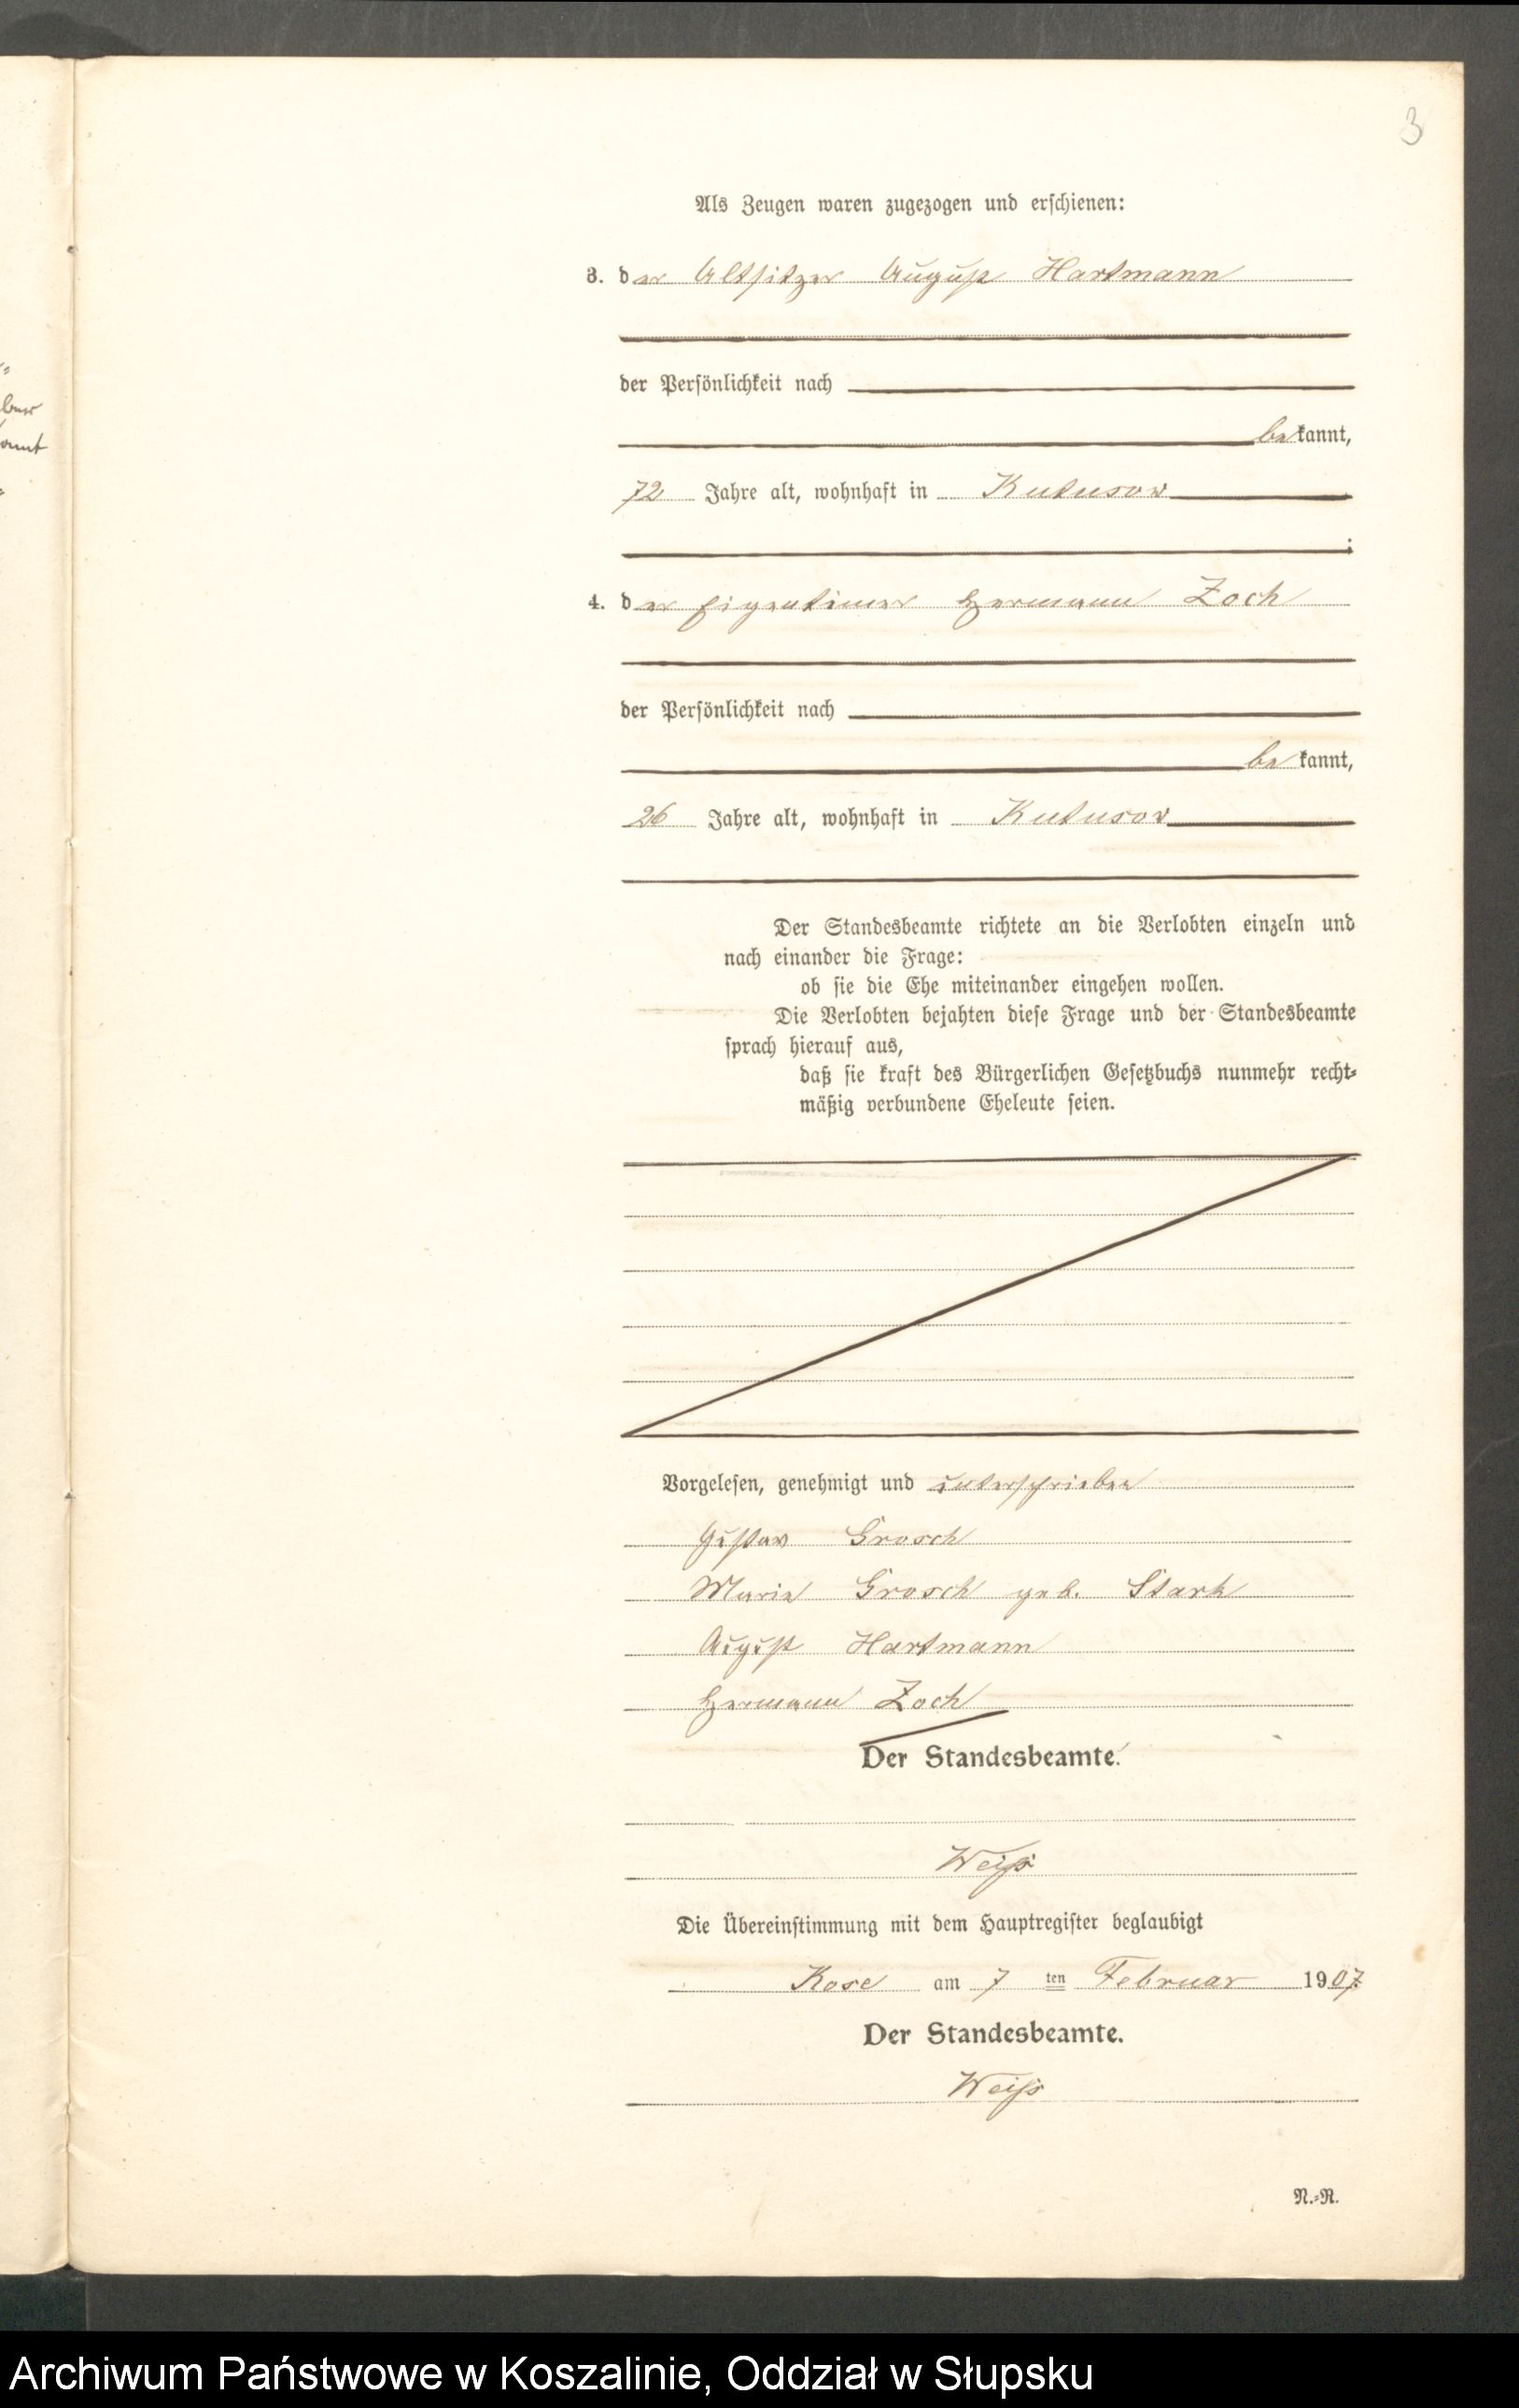 3
Als Zeugen waren zugezogen und erschienen:
3. der Altsitzer August Hartmann
der Persönlichkeit nach
bekannt,
72 Jahre alt, wohnhaft in Kutusow
;
4. der Eigentümer Hermann Zoch
der Persönlichkeit nach
bekannt,
26 Jahre alt, wohnhaft in Kutusow
Der Standesbeamte richtete an die Verlobten einzeln und
nach einander die Frage:
ob sie die Ehe miteinander eingehen wollen.
Die Verlobten bejahten diese Frage und der Standesbeamte
sprach hierauf aus,
daß sie kraft des Bürgerlichen Gesetzbuchs nunmehr recht-
mäßig verbundene Eheleute seien.
Vorgelesen, genehmigt und unterschrieben
Gustav Grosch
Marie Grosch geb. Stark
August Hartmann
Hermann Zoch
Der Standesbeamte.
Weiß
Die Übereinstimmung mit dem Hauptregister beglaubigt
Kose am 7 ten Februar 1907.
Der Standesbeamte.
Weiß
N.-R.
Archiwum Państwowe w Koszalinie, Oddział w Słupsku